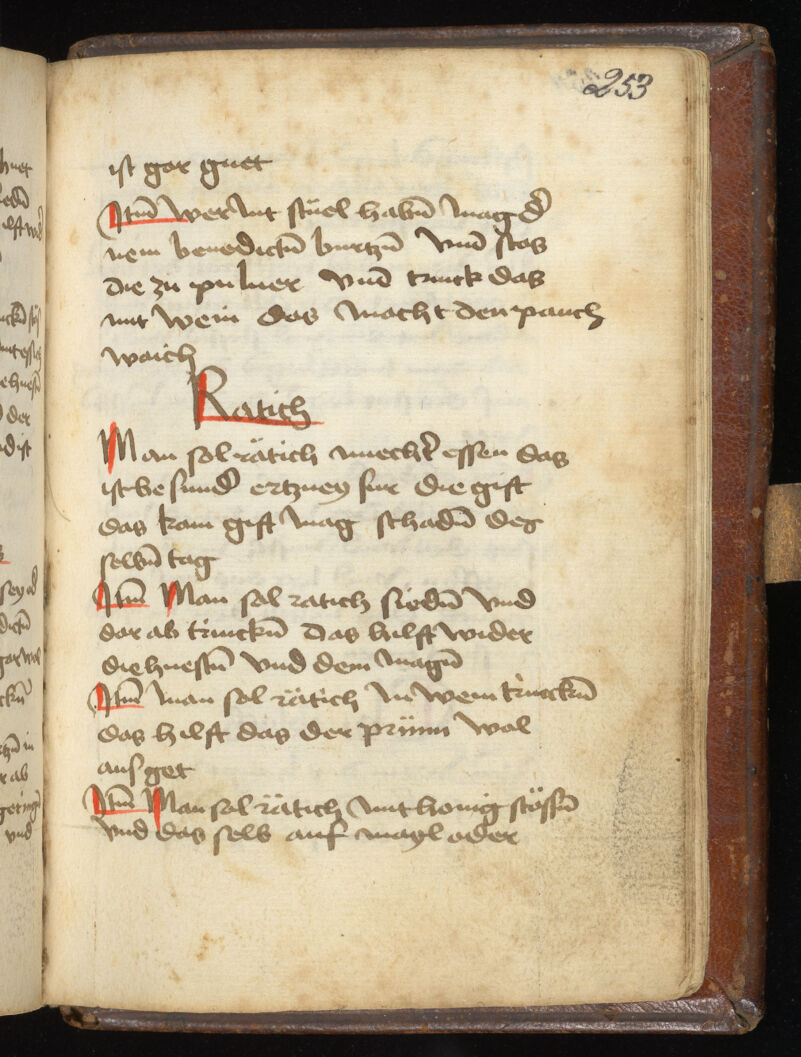 253
ist gar guet
Itm̄ wer nit stuel habn̄ mag d̄
nem benedictn̄ burtzn̄ vnd̄ stos
die zu puluer vnd̄ trinck das
mit wein das macht den pauch
waich
Rätich
Man sol rätich nuecht̄ essen das
ist besund̄ ertzney fur die gift
das kain gift mag schadn̄ des
selbn̄ tag
Itm̄ Man sol ratich siedn̄ vnd
dar ab trinckn̄ das hilft wider
die huestn̄ vnd dem magn̄
Itm̄ man sol rätich in wein trinckn̄
das hilft das der prünn wol
aus get
Itm̄ Man sol rätich mit honig stössn̄
vnd das selb auf mayl oder